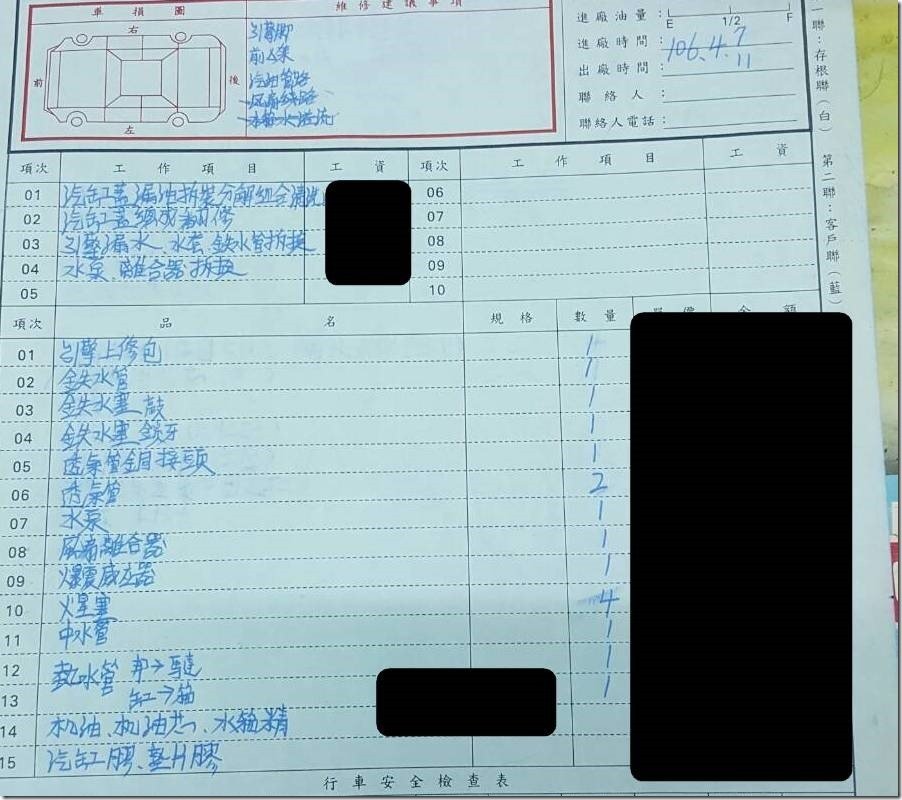 車損圖
維修建議事項
右
前
後
左
引擎腳
汽油管路
風扇線路
水箱水溢流
進廠油量：
E 1/2 F
進廠時間： 106.4.7
出廠時間： 11
聯絡人：
聯絡人電話：
一聯：存根聯（白）
第二聯：客戶聯（藍）
項次 工作項目 工資 項次 工作項目 工資
01 汽缸蓋漏油拆裝分解組合清洗 06
02 汽缸蓋總成翻修 07
03 引擎漏水、水塞、鉄水管拆換 08
04 水泵、離合器拆換 09
05 10
項次 品名 規格 數量
01 引擎上修包 1
02 鉄水管 1
03 鉄水塞 敲 1
04 鉄水塞 鎖牙 1
05 透氣管 接頭 1
06 透氣管 2
07 水泵 1
08 風扇離合器 1
09 爆震感应器 1
10 火星塞 4
11 中水管 1
12 熱水管 1
13 缸→箱 1
14 机油、机油芯、水箱精
15 汽缸膠、墊片膠
行車安全檢查表